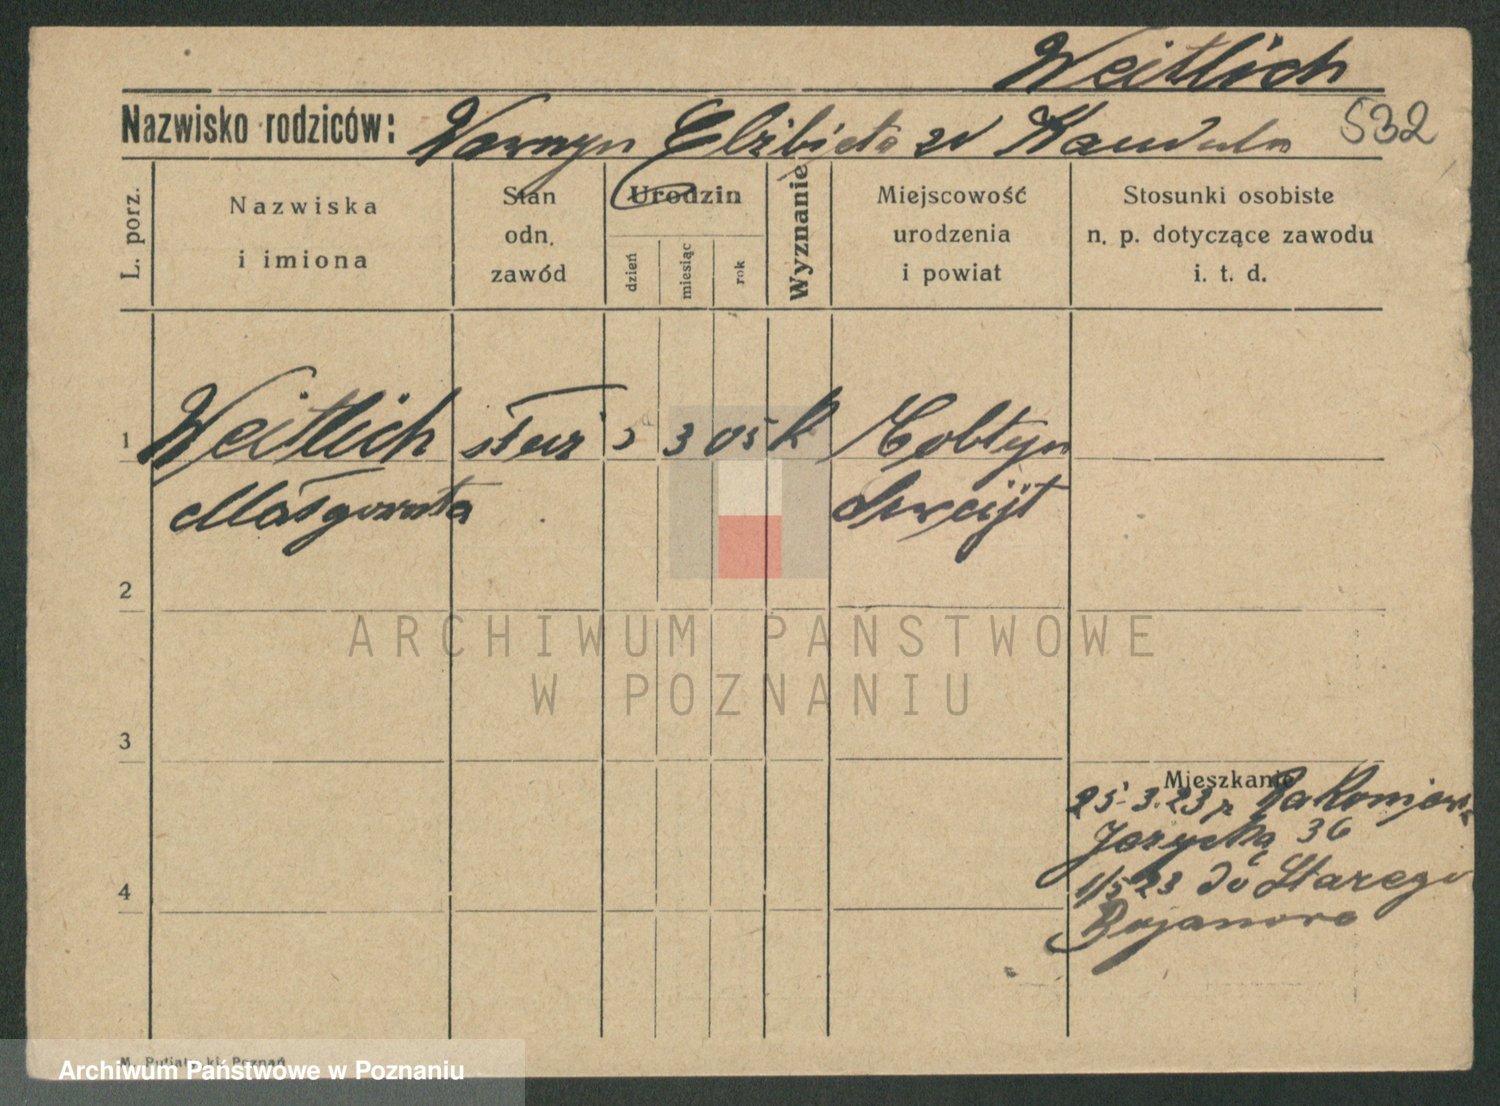 Weitlich
Nazwisko rodziców: Wawrzyn Elżbieta zd Kandula
532
L. porz.
Nazwiska
i imiona
Stan
odn.
zawód
Urodzin
dzień
miesiąc
rok
Wyznanie
Miejscowość
urodzenia
i powiat
Stosunki osobiste
n. p. dotyczące zawodu
i. t. d.
1 Weitlich służ 5 3 05 k
Małgorzata
2
3
Mieszkanie
25.3.23 z
Jeżycka 36
4
1/5 23 do Starego
Bojanowa
M. Putiatycki, Poznań
ARCHIWUM PAŃSTWOWE
W POZNANIU
Archiwum Państwowe w Poznaniu